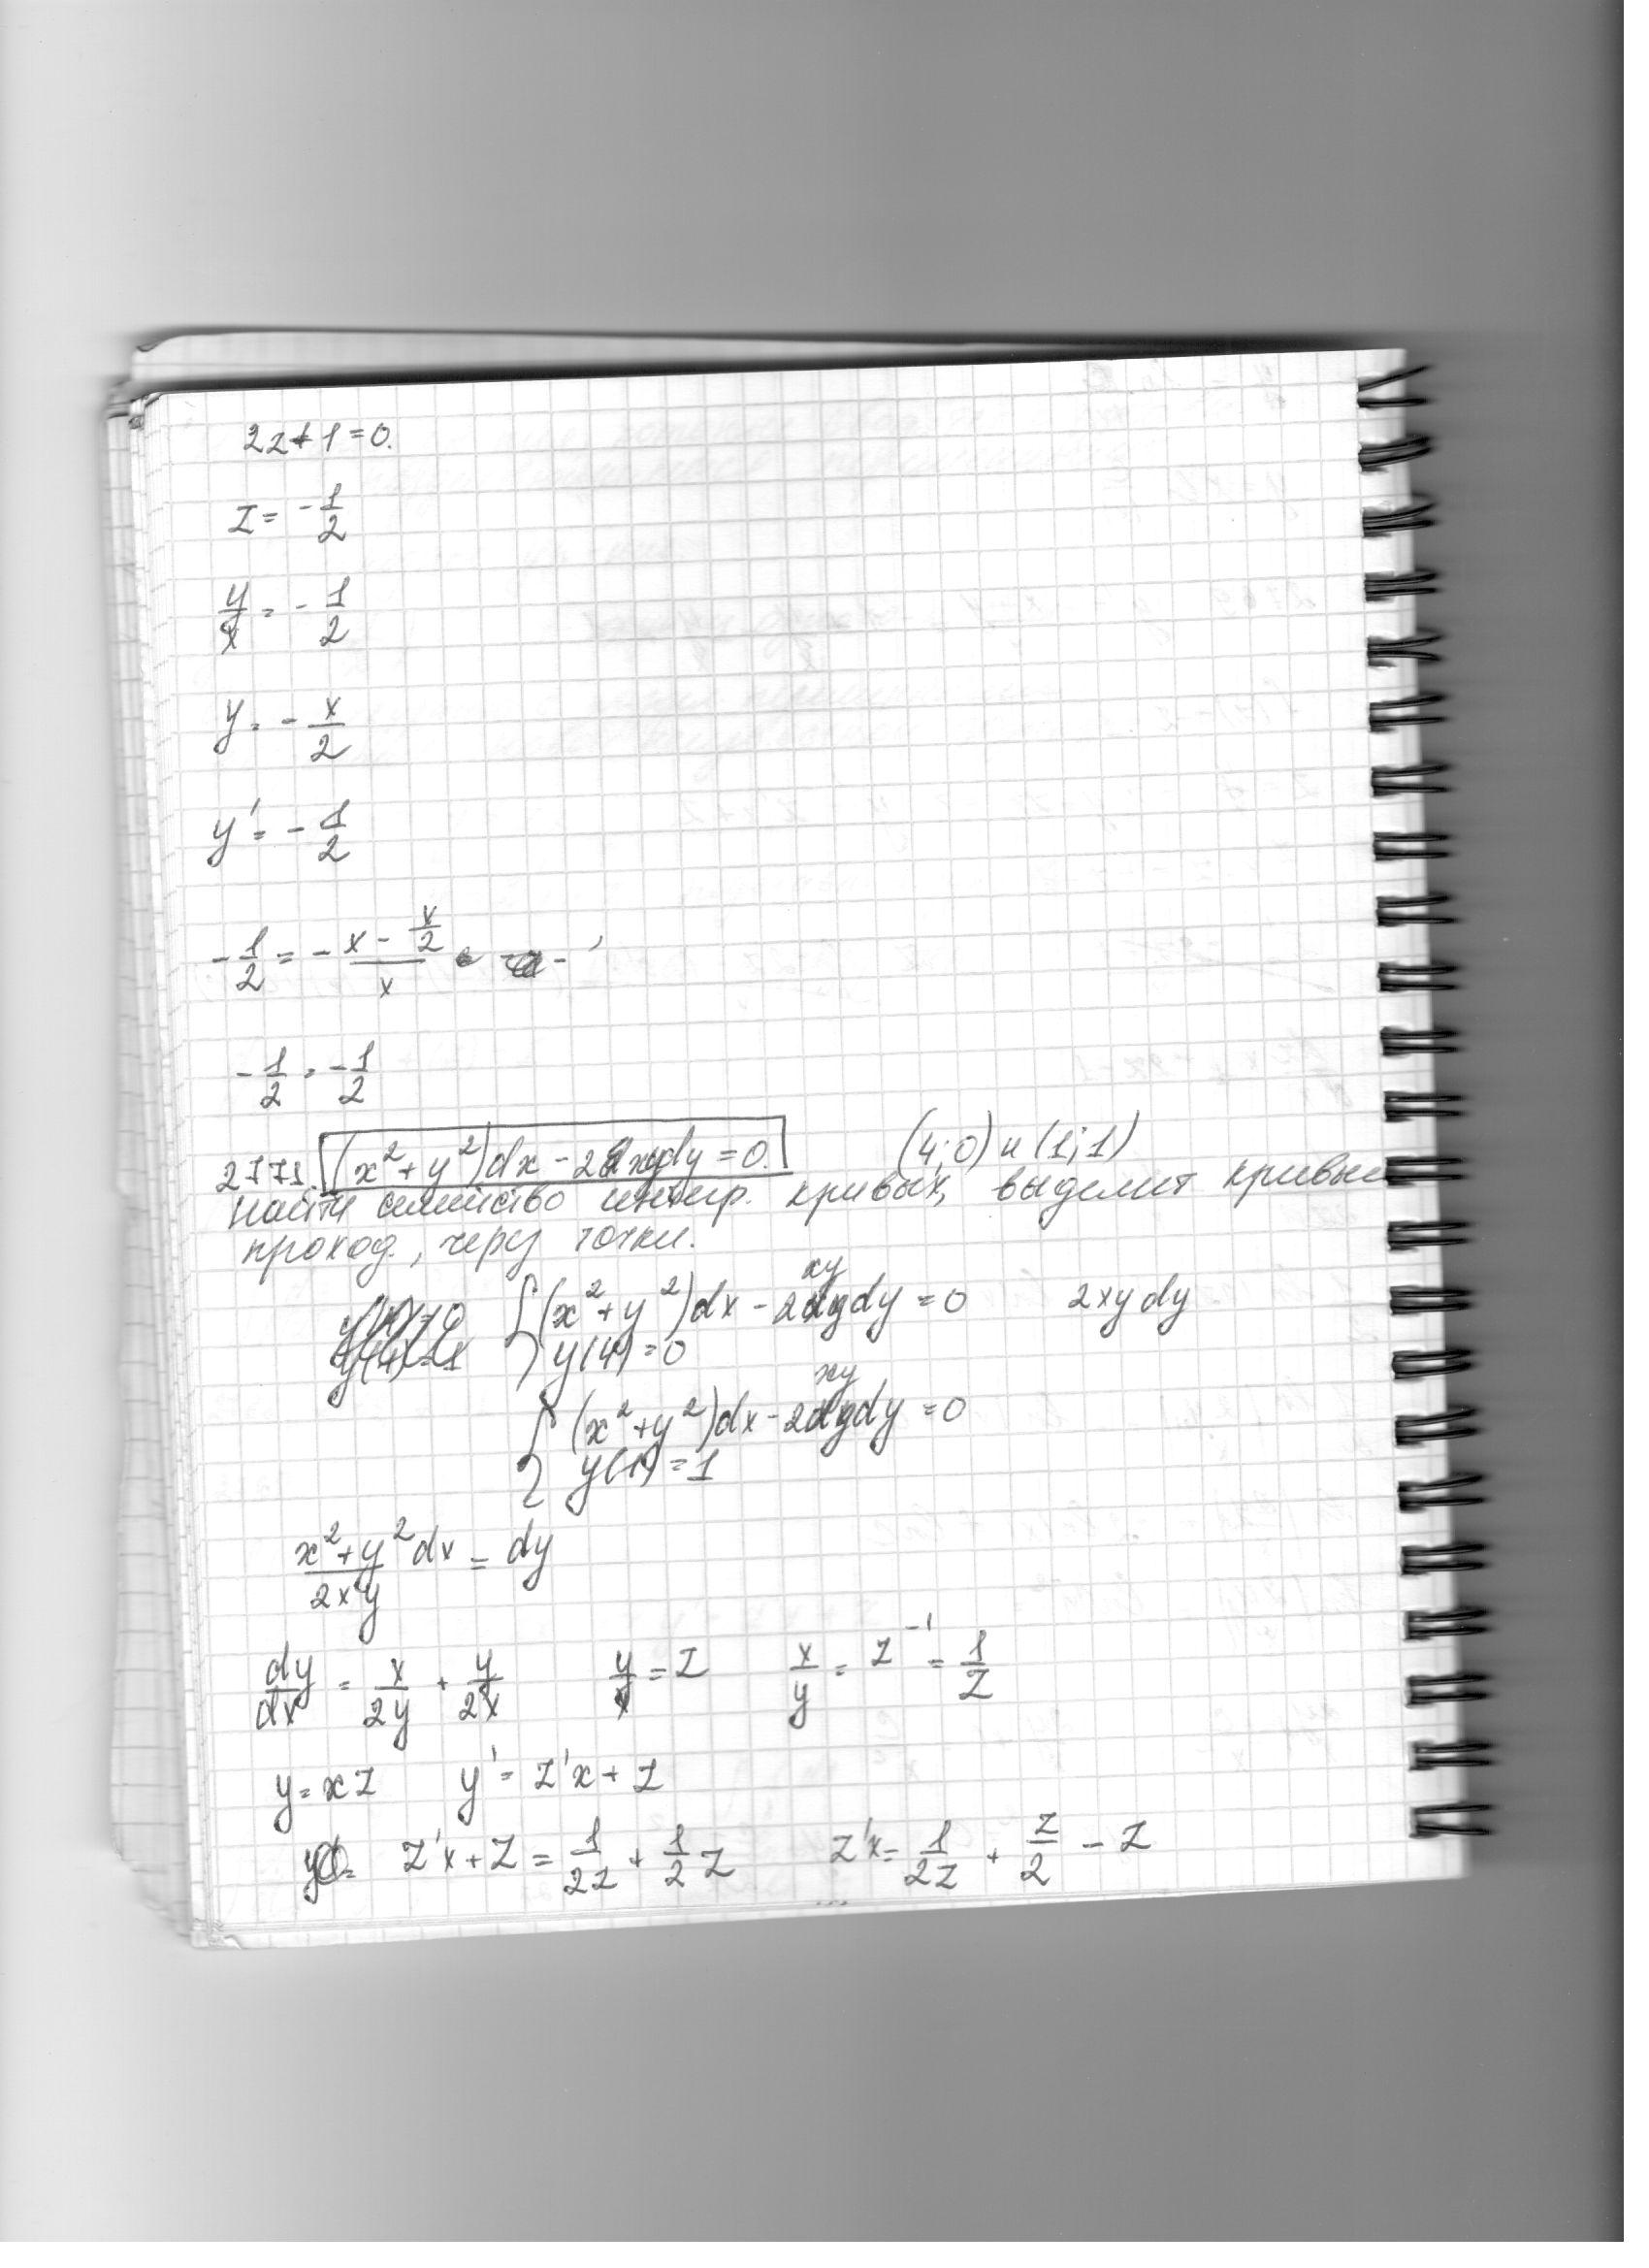 2z+1=0.
z = -1/2
y/x = -1/2
y = -x/2
y' = -1/2
-1/2 = -(x - x/2)/x
-1/2 = -1/2
2771. (x²+y²)dx - 2xydy = 0. (4;0) и (1;1)
Найти семейство интегр. кривых, выделит кривые
проход., через точки.
{(x²+y²)dx - 2xydy = 0 2xydy
y(4) = 0
{(x²+y²)dx - 2xydy = 0
y(1) = 1
(x²+y²)/2xy dx = dy
dy/dx = x/2y + y/2x y/x = z x/y = z⁻¹ = 1/z
y = xz y' = z'x + z
z'x + z = 1/2z + 1/2 z z'x = 1/2z + z/2 - z